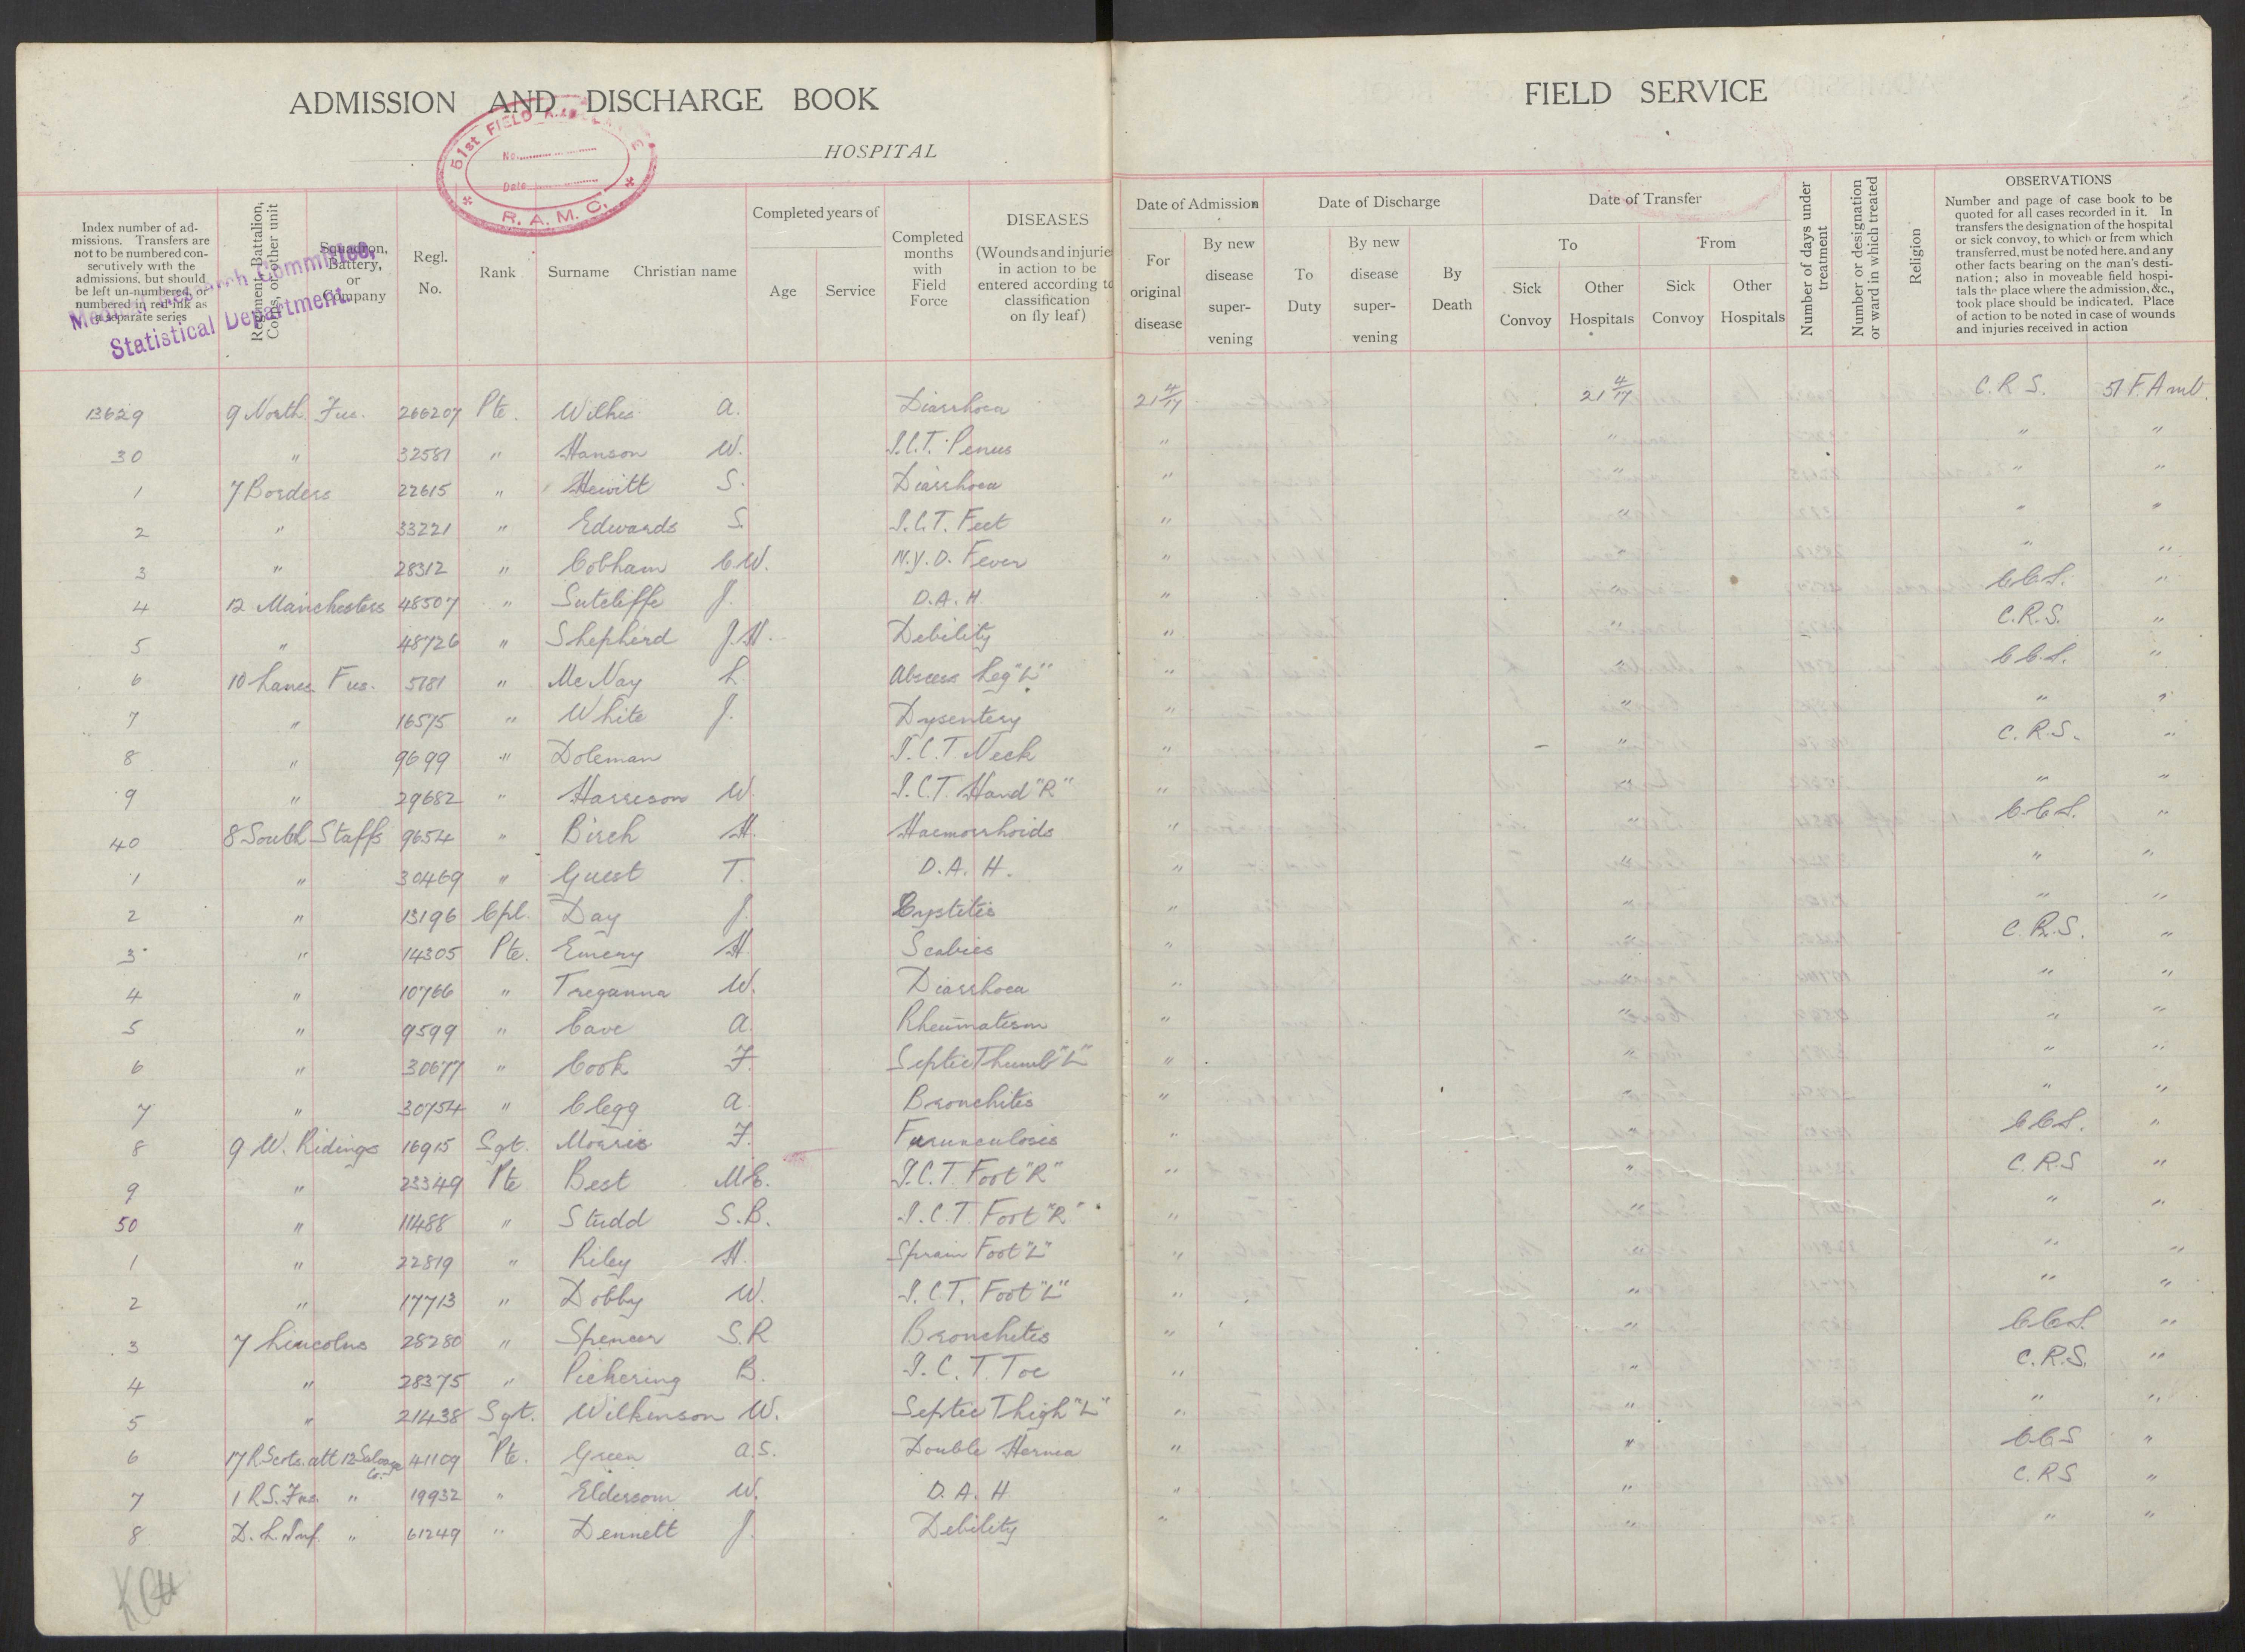 ADMISSION AND DISCHARGE BOOK
FIELD SERVICE
HOSPITAL
51st FIELD AMBULANCE
No.
Date
R. A. M. C.
Medical Research Committee,
Statistical Department.
Index number of admissions. Transfers are not to be numbered consecutively with the admissions, but should be left un-numbered, or numbered in red ink as a separate series
Regiment, Battalion, Corps, or other unit
Squadron, Battery, or Company
Regl. No.
Rank
Surname Christian name
Completed years of
Age Service
Completed months with Field Force
DISEASES
(Wounds and injuries in action to be entered according to classification on fly leaf)
Date of Admission
For original disease
By new disease supervening
Date of Discharge
To Duty
By new disease supervening
By Death
Date of Transfer
To
Sick Convoy
Other Hospitals
From
Sick Convoy
Other Hospitals
Number of days under treatment
Number or designation or ward in which treated
Religion
OBSERVATIONS
Number and page of case book to be quoted for all cases recorded in it. In transfers the designation of the hospital or sick convoy, to which or from which transferred, must be noted here, and any other facts bearing on the man's destination; also in moveable field hospitals the place where the admission, &c., took place should be indicated. Place of action to be noted in case of wounds and injuries received in action
13629 9 North Fus. 266207 Pte. Wilkes A. Diarrhoea 21 4/17 21 4/17 C.R.S. 51 F. Amb.
30 " 32581 " Hanson W. I.C.T. Penus " " " "
1 7 Borders 22615 " Hewitt S. Diarrhoea " " " "
2 " 33221 " Edwards S. I.C.T. Feet " " " "
3 " 28312 " Cobham C.W. N.Y.D. Fever " " " "
4 12 Manchesters 48507 " Sutcliffe J. D.A.H. " " C.C.S. "
5 " 48726 " Shepherd J.H. Debility " " C.R.S. "
6 10 Lancs. Fus. 5181 " McNay L. Abscess Leg "L" " " C.C.S. "
7 " 16575 " White J. Dysentery " " " "
8 " 9699 " Doleman I.C.T. Neck " " C.R.S. "
9 " 29682 " Harrison W. I.C.T. Hand "R" " " " "
40 8 South Staffs 9654 " Birch H. Haemorrhoids " " C.C.S. "
1 " 30469 " Guest T. D.A.H. " " " "
2 " 13196 Cpl. Day J. Cystitis " " " "
3 " 14305 Pte. Emery H. Scabies " " C.R.S. "
4 " 10766 " Treganna W. Diarrhoea " " " "
5 " 9599 " Cave A. Rheumatism " " " "
6 " 30677 " Cook F. Septic Thumb "L" " " " "
7 " 30754 " Clegg A. Bronchitis " " " "
8 9 W. Ridings 16915 Sgt. Morris F. Furunculosis " " C.C.S. "
9 " 23349 Pte Best M.E. I.C.T. Foot "R" " " C.R.S "
50 " 11488 " Studd S.B. I.C.T. Foot "R" " " " "
1 " 22819 " Riley H. Sprain Foot "L" " " " "
2 " 17713 " Dobby W. I.C.T. Foot "L" " " " "
3 7 Lincolns 28280 " Spencer S.R Bronchitis " " C.C.S. "
4 " 28375 " Pickering B. I.C.T. Toe " " C.R.S. "
5 " 21438 Sgt. Wilkinson W. Septic Thigh "L" " " " "
6 17 R Scots. att 12 Salvage Co. 41109 Pte. Green A.S. Double Hernia " " C.C.S "
7 1 R.S. Fus. " 19932 " Eldersom W. D.A.H " " C.R.S "
8 D.L. Inf. " 61249 " Dennett J. Debility " " " "